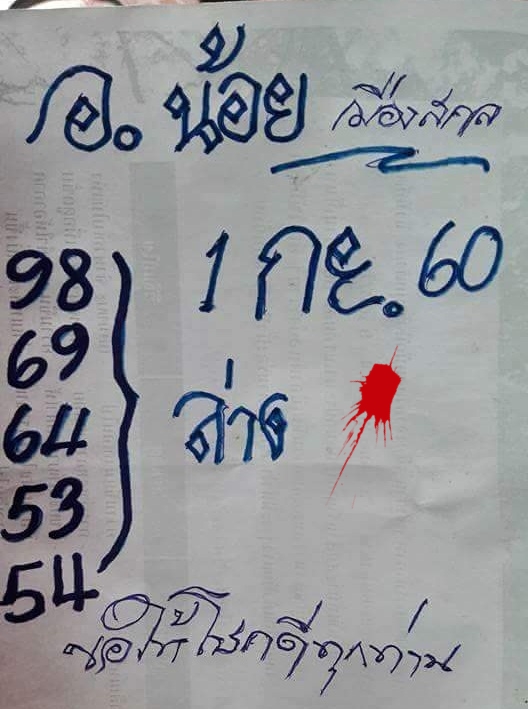 อ. น้อย เมืองสกล
1 กย. 60
98
69
64
53
54
ล่าง
ขอให้โชคดีทุกท่าน